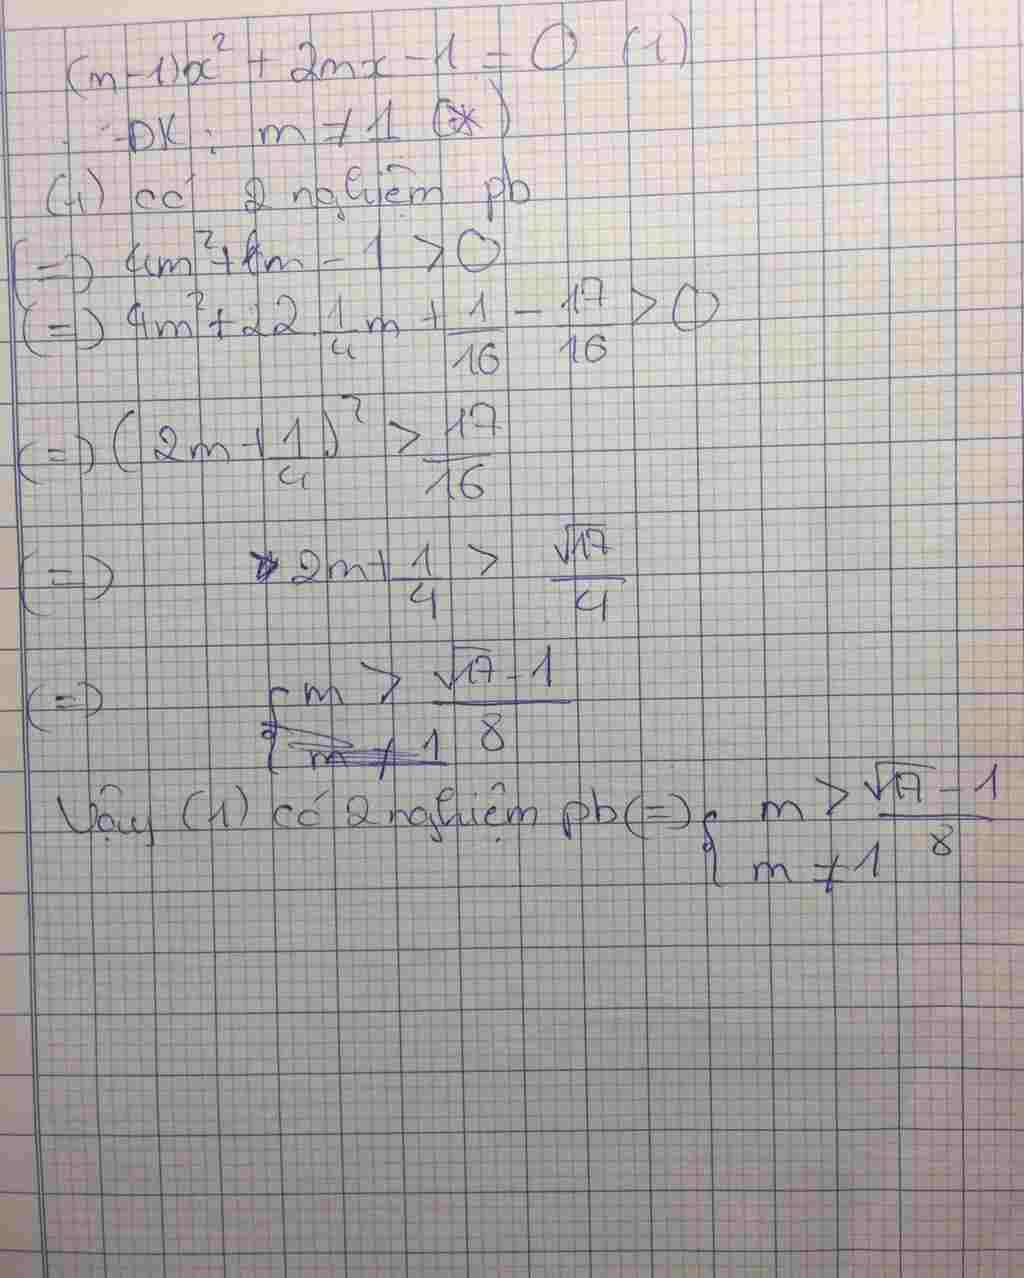 (m-1)x² + 2mx - 1 = 0 (1)
ĐK: m ≠ 1 (*)
(1) có 2 nghiệm pb
(=) 4m² + m - 1 > 0
(=) 4m² + 2 2 1/4 m + 1/16 - 17/16 > 0
(=) (2m + 1/4)² > 17/16
(=) 2m + 1/4 > √17/4
(=) { m > (√17 - 1)/8
m ≠ 1
Vậy (1) có 2 nghiệm pb (=) { m > (√17 - 1)/8
m ≠ 1